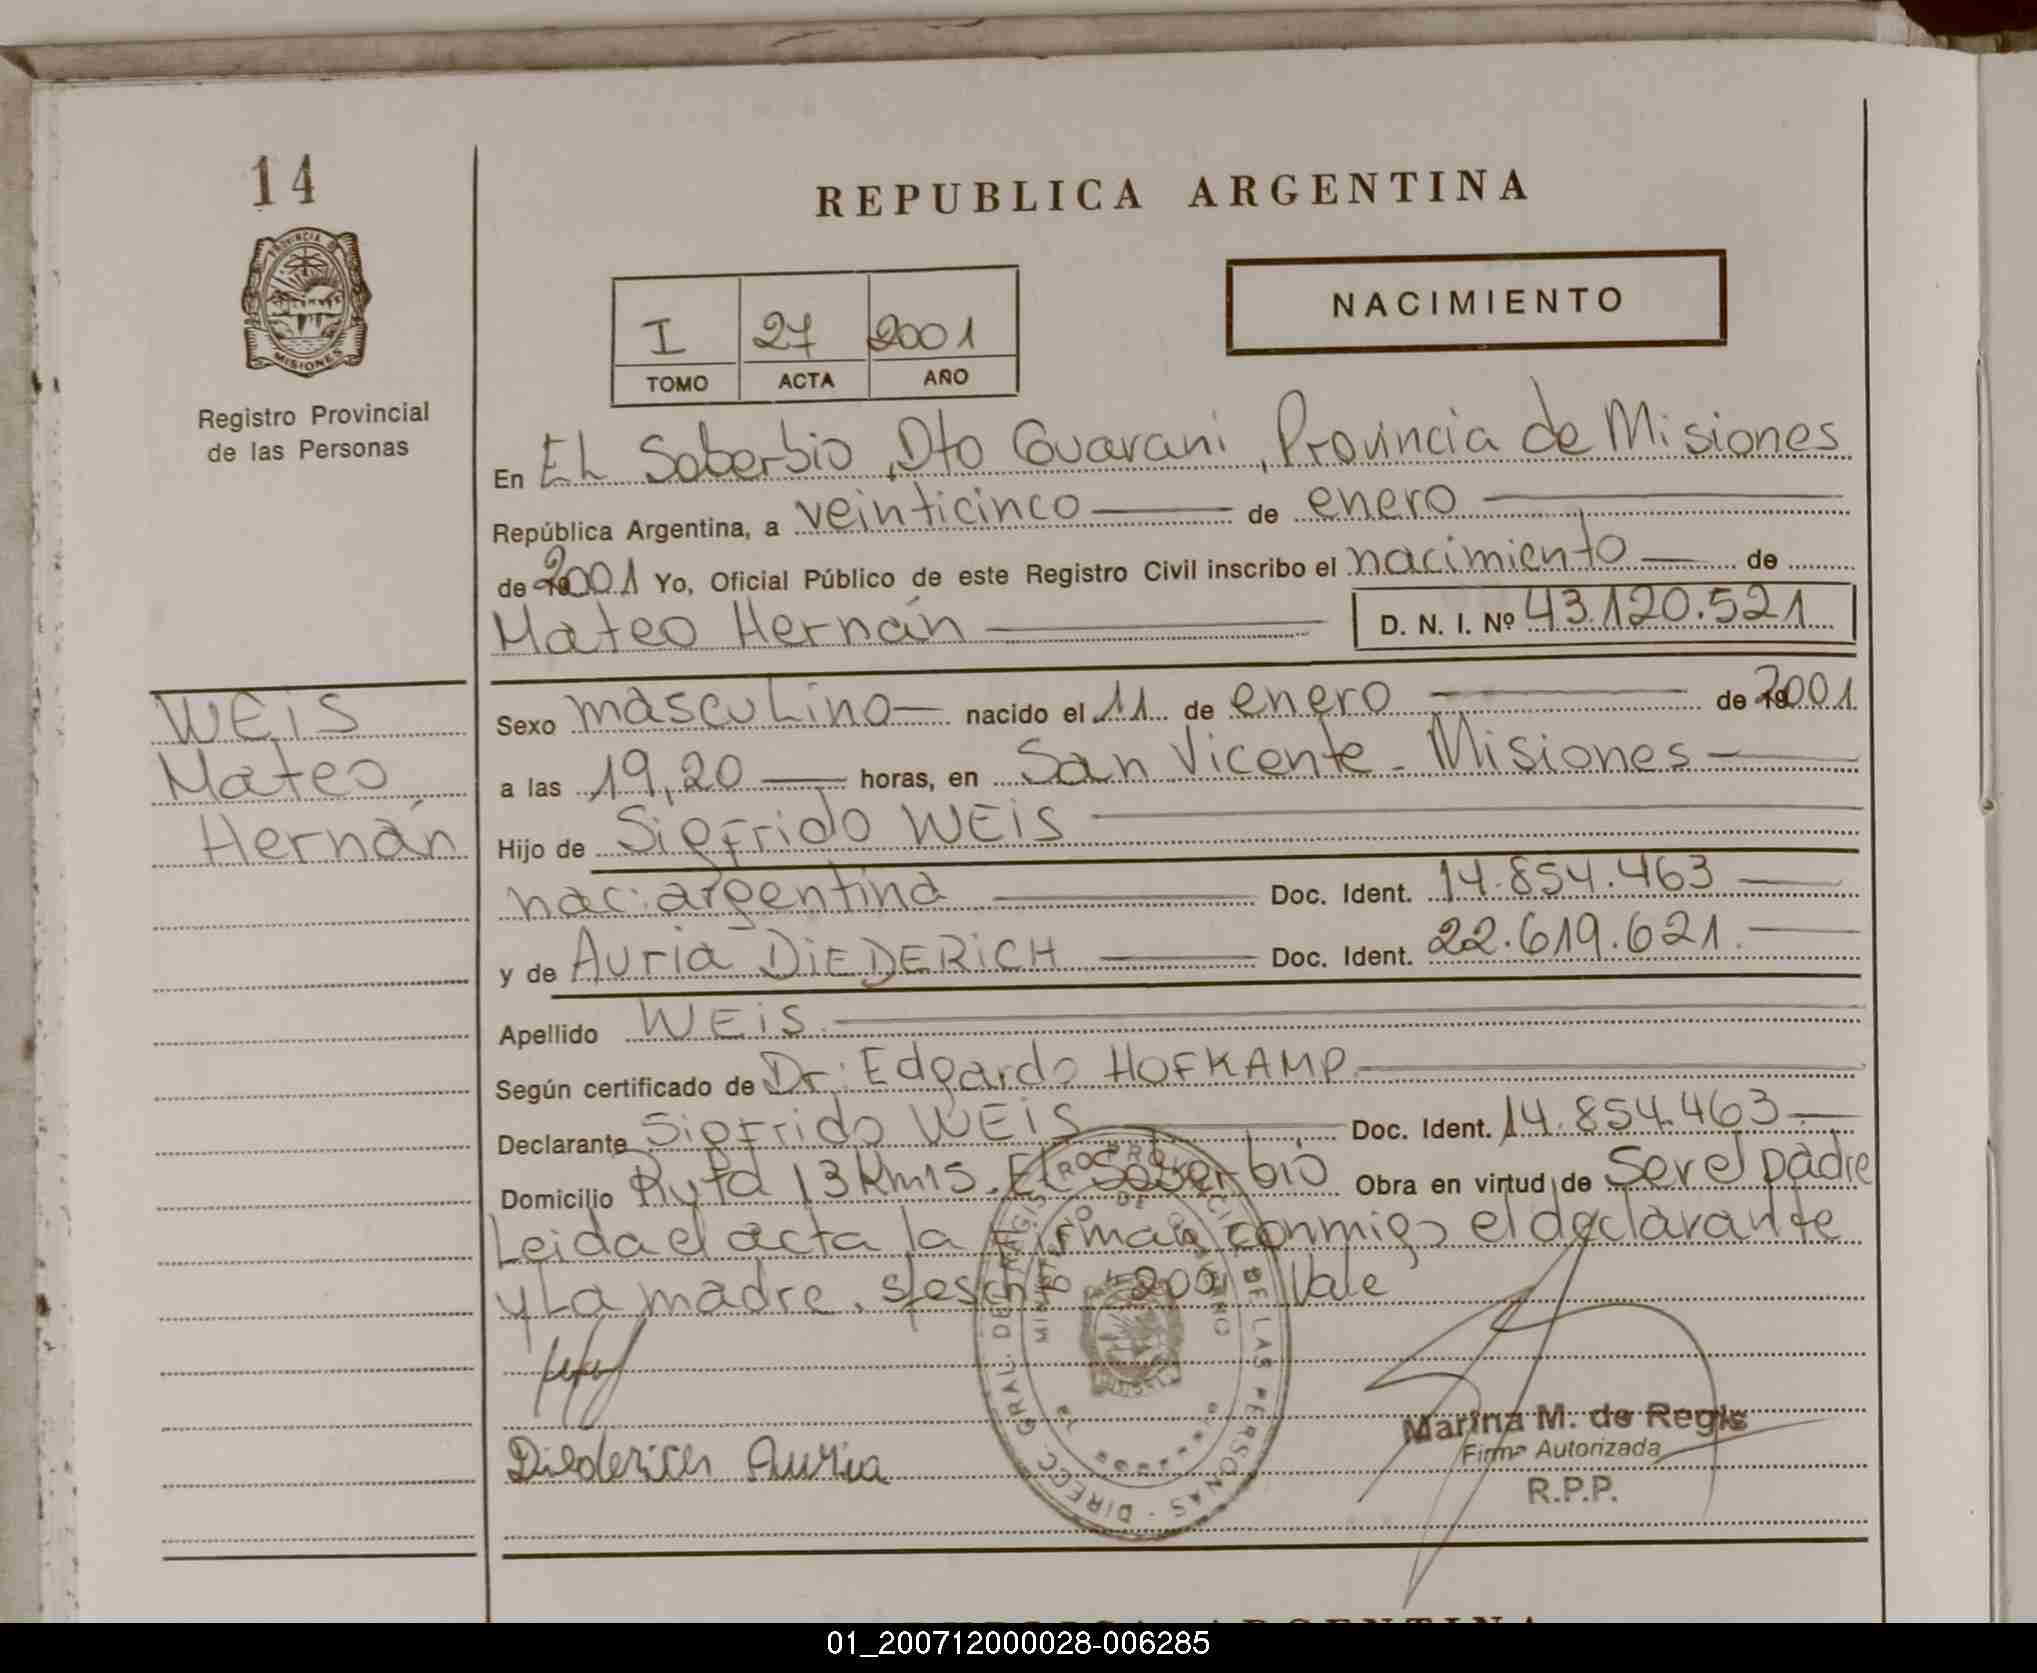 14
PROVINCIA DE
MISIONES
Registro Provincial
de las Personas
REPUBLICA ARGENTINA
I 27 2001
TOMO ACTA AÑO
NACIMIENTO
En EL Soberbio, Dto Guarani, Provincia de Misiones
República Argentina, a veinticinco de enero
de 2001 Yo, Oficial Público de este Registro Civil inscribo el nacimiento de
Mateo Hernán D. N. I. Nº 43.120.521
WEiS
Mateo
Hernán
Sexo masculino nacido el 11 de enero de 2001
a las 19,20 horas, en San Vicente - Misiones
Hijo de Sigfrido WEiS
nac: argentina Doc. Ident. 14.854.463
y de Auria DiEDERiCH Doc. Ident. 22.619.621
Apellido WEiS
Según certificado de Dr. Edgardo HOFKAMP
Declarante Sigfrido WEiS Doc. Ident. 14.854.463
Domicilio Ruta 13 Km 15. El Soberbio Obra en virtud de Ser el padre
Leida el acta la firman conmigo el declarante
y La madre. s/escrito 2001 Vale
Diederich Auria
Marina M. de Regis
Firma Autorizada
R.P.P.
DIRECC. GRAL. DEL REGISTRO PROVINCIAL DE LAS PERSONAS
MINISTERIO DE GOBIERNO
REPUBLICA ARGENTINA
01_200712000028-006285